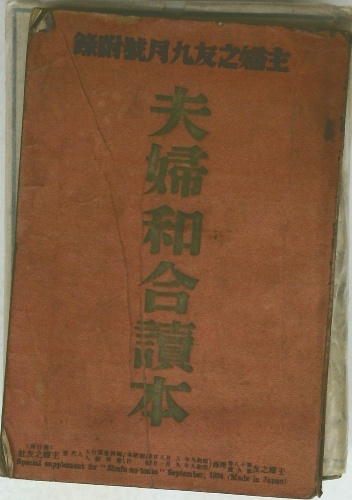 主婦之友九月號附錄
夫婦和合讀本
主婦之友
主婦之友社
Special supplement for "Shufu-no-tomo" September, 1934 (Made in Japan)